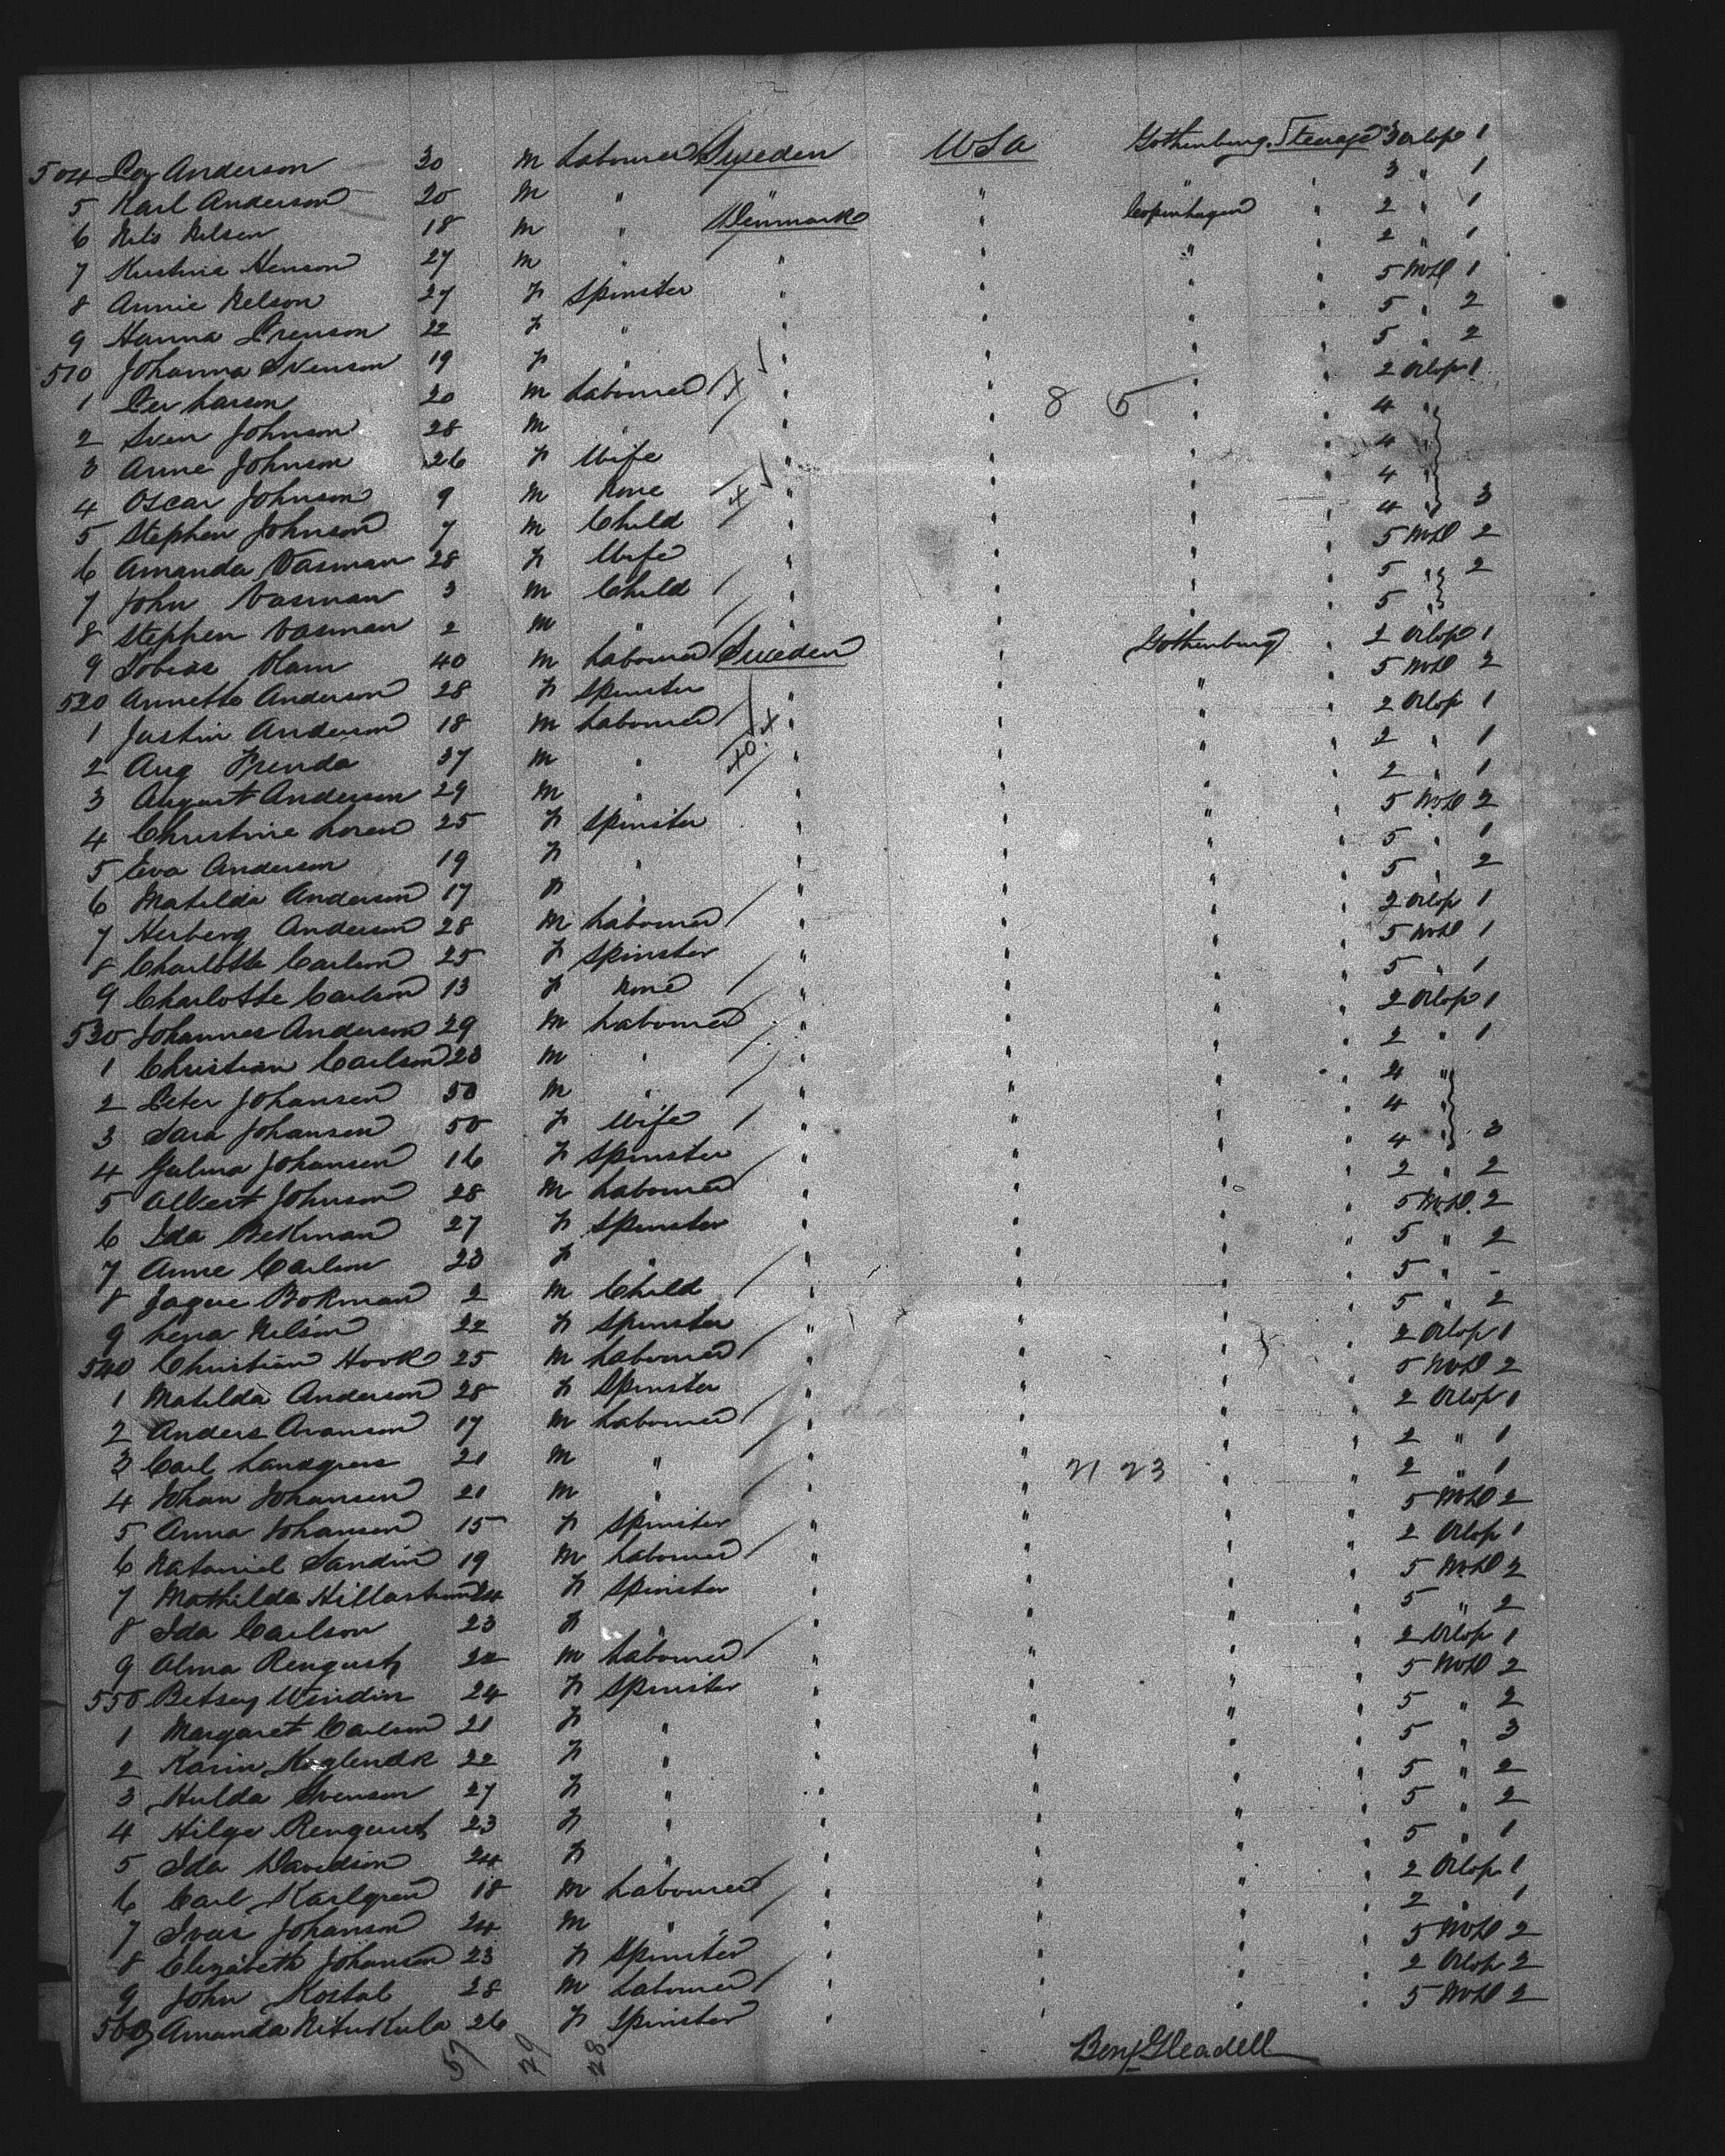 504 Per Anderson 30 M Labourer Sweden USA Gothenburg Steerage 3 Orlop 1
5 Karl Anderson 20 M " " " " 3 " 1
6 Nils Nilsen 18 M " Denmark " Copenhagen " 2 " 1
7 Kustina Henson 27 M " " " " " 2 " 1
8 Annie Nelson 27 F Spinster " " " " 5 1
9 Hanna 22 F " " " " " 5 " 2
510 Johanna Svenson 19 F " " " " " 5 " 2
1 Per Larson 20 M Labourer " " " " 2 Orlop 1
8 5
2 Sven Johnson 28 M " " " " " 4 "
3 Anne Johnson 26 F Wife " " " " 4 "
4 Oscar Johnson 9 M None " " " " 4 "
5 Stephen Johnson 7 M Child " " " " 4 " 3
6 Amanda Vasman 28 F Wife " " " " 5 2
7 John Vasman 3 M Child " " " " 5 " 2
8 Stephen Vasman 2 M " " " " " 5 "
9 Tobias Ham 40 M Labourer Sweden " Gothenburg " 2 Orlop 1
520 Annette Anderson 28 F Spinster " " " " 5 2
1 Justin Anderson 18 M Labourer " " " " 2 Orlop 1
2 Aug Frenda 37 M " " " " " 2 " 1
3 August Anderson 29 M " " " " " 2 " 1
4 Christine Loren 25 F Spinster " " " " 5 2
5 Eva Anderson 19 F " " " " " 5 " 1
6 Matilda Anderson 17 F " " " " " 5 " 2
7 Herberg Anderson 28 M Labourer " " " " 2 Orlop 1
8 Charlotte Carlson 25 F Spinster " " " " 5 1
9 Charlotte Carlson 13 F None " " " " 5 " 1
530 Johannes Anderson 29 M Labourer " " " " 2 Orlop 1
1 Christian Carlson 23 M " " " " " 2 " 1
2 Peter Johansen 50 M " " " " " 4 "
3 Sara Johansen 50 F Wife " " " " 4 "
4 Johansen 16 F Spinster " " " " 4 " 3
5 Albert Johnson 28 M Labourer " " " " 2 " 2
6 Ida Bekman 27 F Spinster " " " " 5 2
7 Anne Carlson 23 F " " " " " 5 " 2
8 Jague Bokman 2 M Child " " " " 5 " -
9 Lena Nilson 22 F Spinster " " " " 5 " 2
540 Christian Hook 25 M Labourer " " " " 2 Orlop 1
1 Matilda Anderson 28 F Spinster " " " " 5 2
2 Anders Aranson 17 M Labourer " " " " 2 Orlop 1
3 Carl Landgren 21 M " " " " " 2 " 1
21 23
4 Johan Johansen 21 M " " " " " 2 " 1
5 Anna Johansen 15 F Spinster " " " " 5 2
6 Nataniel Sandin 19 M Labourer " " " " 2 Orlop 1
7 Mathilda 24 F Spinster " " " " 5 2
8 Ida Carlson 23 F " " " " " 5 " 2
9 Alma Renquist 22 M Labourer " " " " 2 Orlop 1
550 Betsey Windin 24 F Spinster " " " " 5 2
1 Margaret Carlson 21 F " " " " " 5 " 2
2 Karin 22 F " " " " " 5 " 3
3 Hulda Svenson 27 F " " " " " 5 " 2
4 Hilge Renquist 23 F " " " " " 5 " 2
5 Ida Davidson 24 F " " " " " 5 " 1
6 Carl Karlgren 18 M Labourer " " " " 2 Orlop 1
7 Ivar Johanson 24 M " " " " " 2 " 1
8 Elizabeth Johansen 23 F Spinster " " " " 5 2
9 John Kostal 28 M Labourer " " " " 2 Orlop 2
560 Amanda 26 F Spinster " " " " 5 2
57 29 28
Benj Gleadell